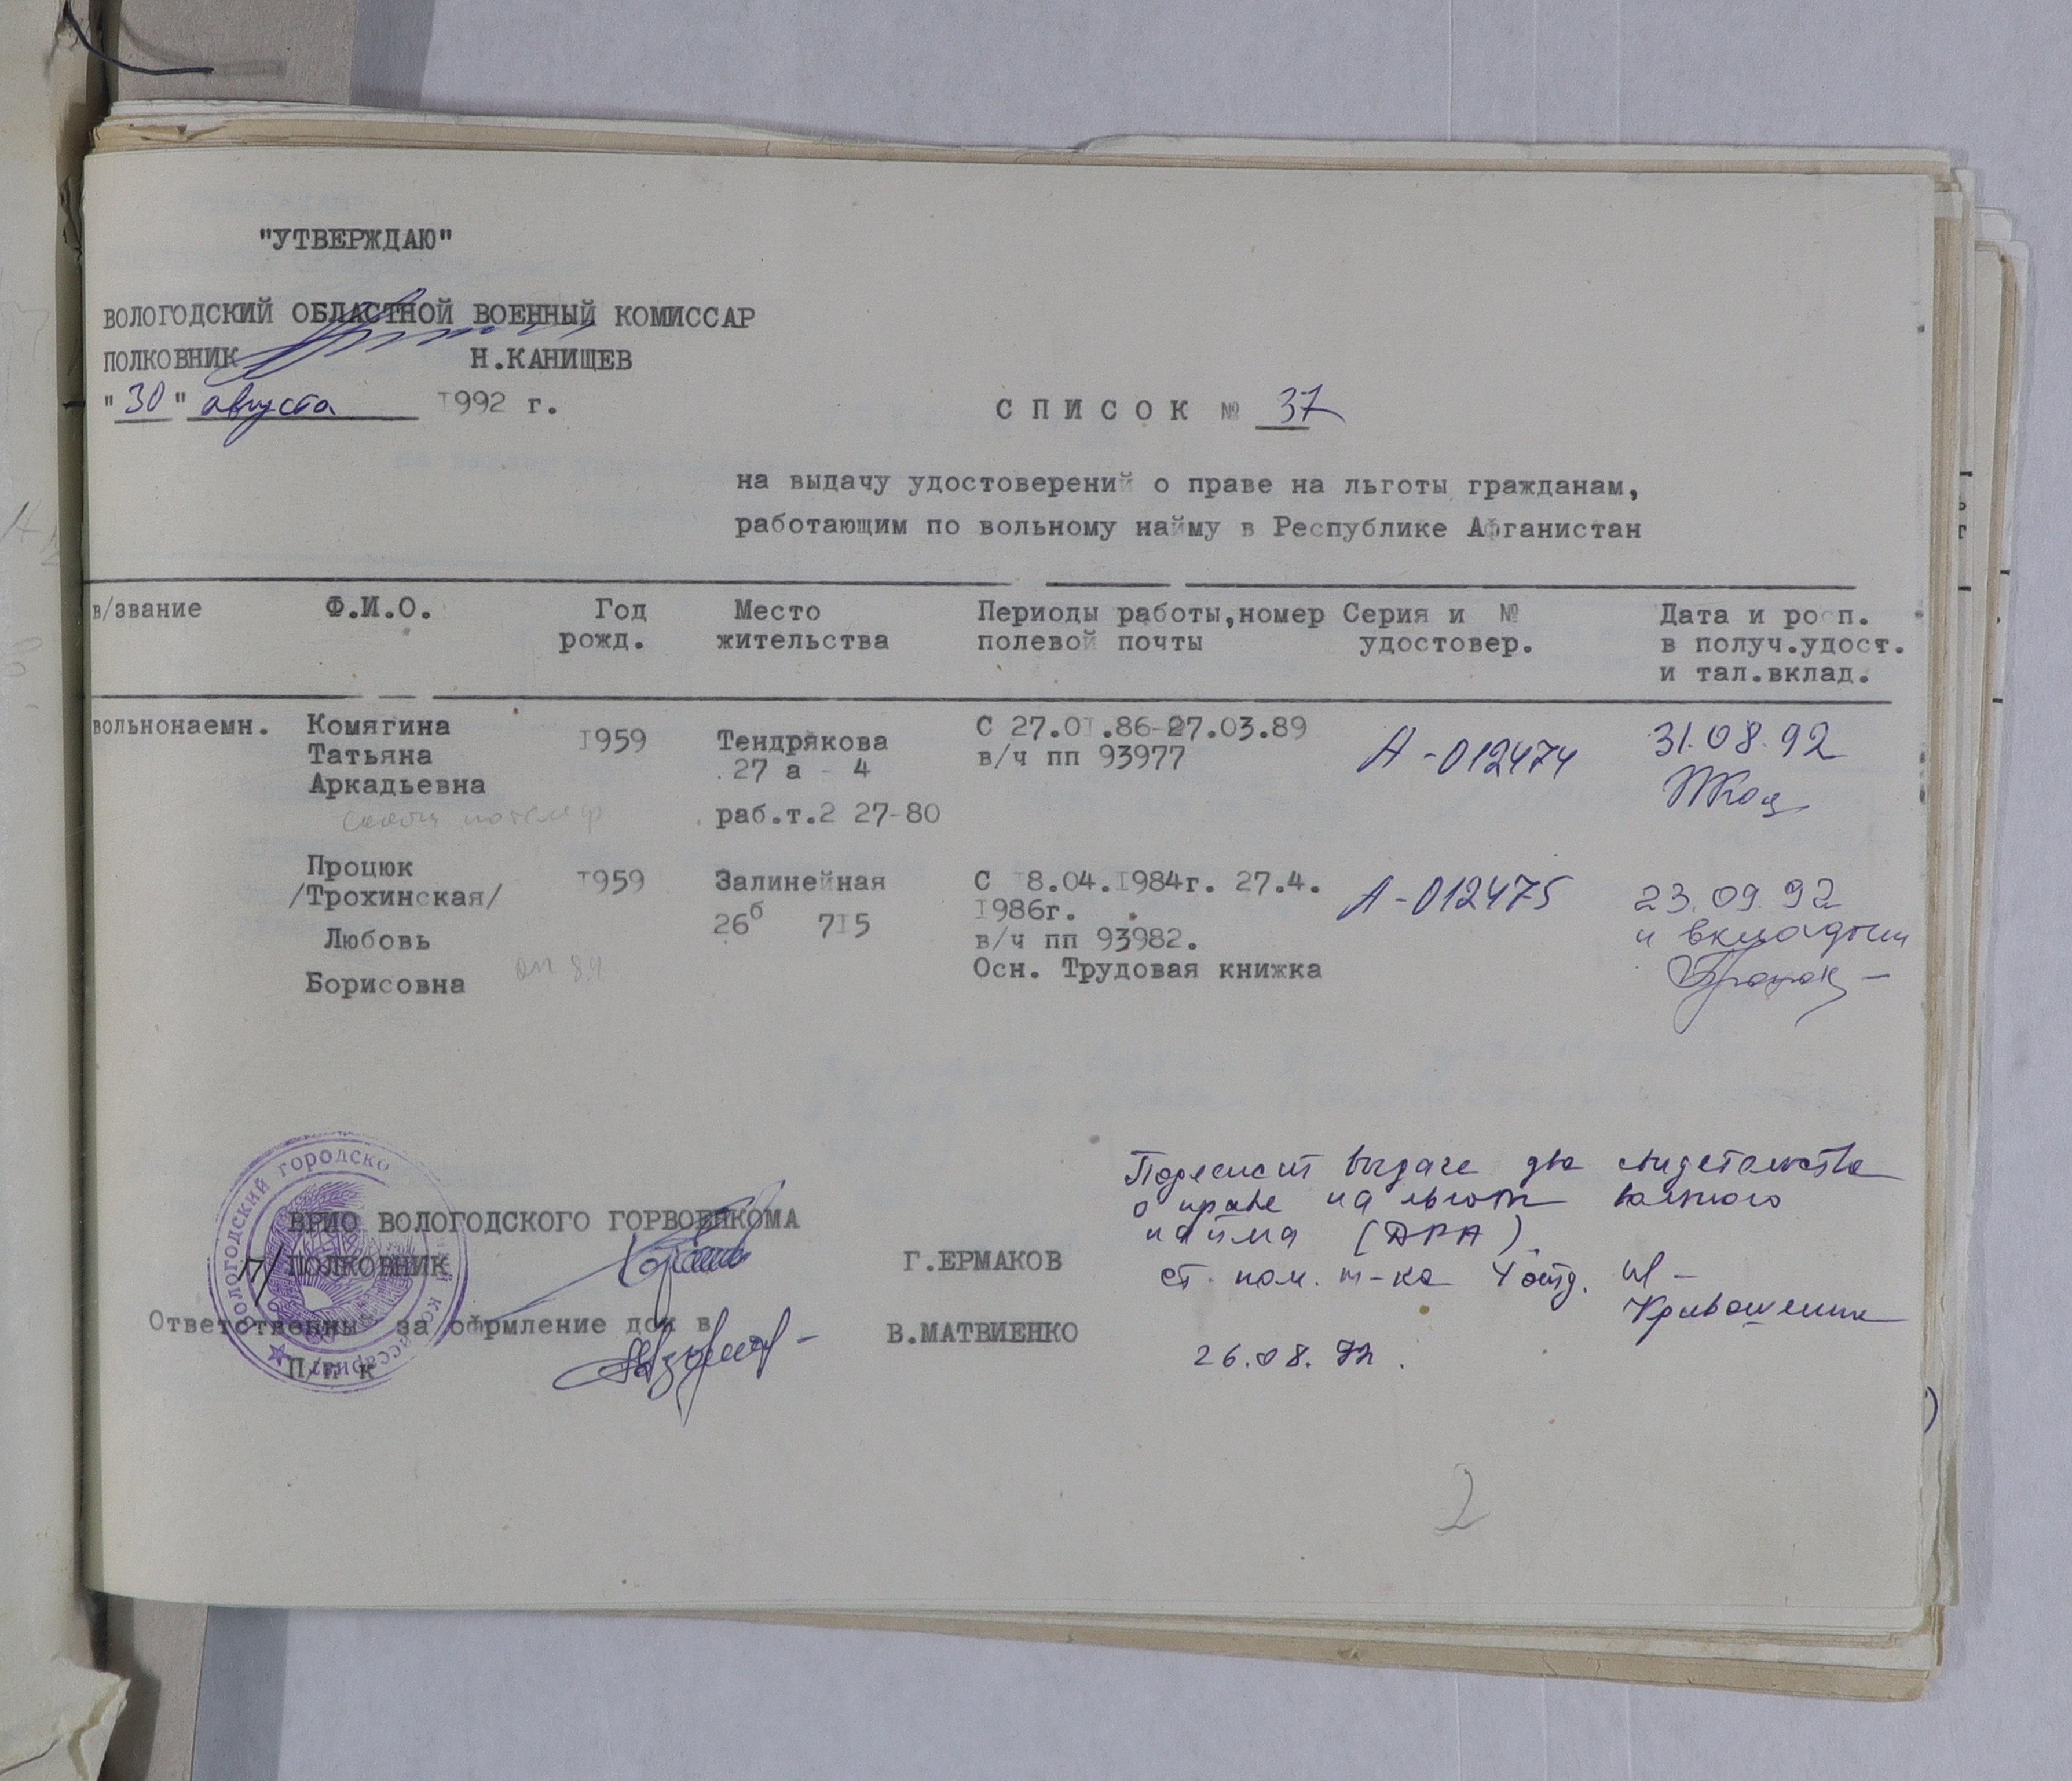 "УТВЕРЖДАЮ"
ВОЛОГОДСКИЙ ОБЛАСТНОЙ ВОЕННЫЙ КОМИССАР
ПОЛКОВНИК Н.КАНИЩЕВ
"30" августа 1992 г.
СПИСОК № 37
на выдачу удостоверений о праве на льготы гражданам,
работающим по вольному найму в Республике Афганистан
в/звание Ф.И.О. Год рожд. Место жительства Периоды работы,номер полевой почты Серия и № удостовер. Дата и росп. в получ.удост. и тал.вклад.
вольнонаемн. Комягина 1959 Тендрякова С 27.01.86-27.03.89 А-012474 31.08.92
Татьяна 27 а - 4 в/ч пп 93977
Аркадьевна
раб.т.2 27-80
Процюк 1959 Залинейная С 18.04.1984г. 27.4. А-012475 23.09.92
/Трохинская/ 26б 715 1986г. и вкладыш
Любовь в/ч пп 93982.
Борисовна Осн. Трудовая книжка
Подлежит выдаче два свидетельства
о праве на льготы вольного
найма (ДРА)
ст. пом. н-ка 4 отд.
26.08.92.
ВРИО ВОЛОГОДСКОГО ГОРВОЕНКОМА
П/ПОЛКОВНИК Г.ЕРМАКОВ
Ответственны за офрмление док в
П/п к В.МАТВИЕНКО
2